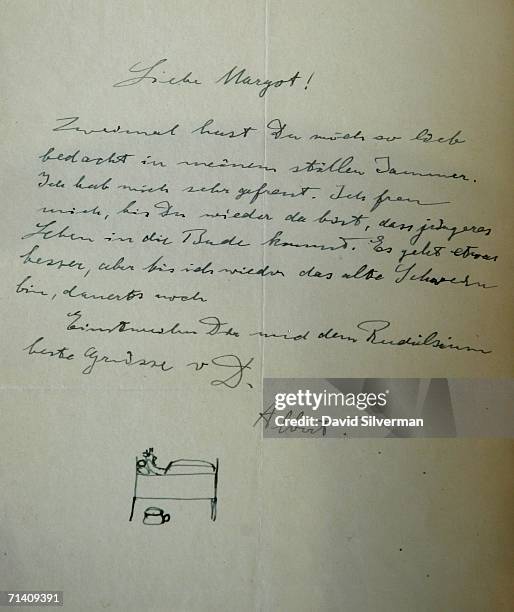 Liebe Margot!
Zweimal hast Du mich so lieb
bedacht in meinem stillen Jammer.
Ich hab mich sehr gefreut. Ich freu
mich, bis Du wieder da bist, dass jüngeres
Leben in die Bude kommt. Es geht etwas
besser, aber bis ich wieder das alte Schwein
bin, dauerts noch
Einstweilen Dir und dem
beste Grüsse v D.
Albert.
gettyimages
David Silverman
71409391